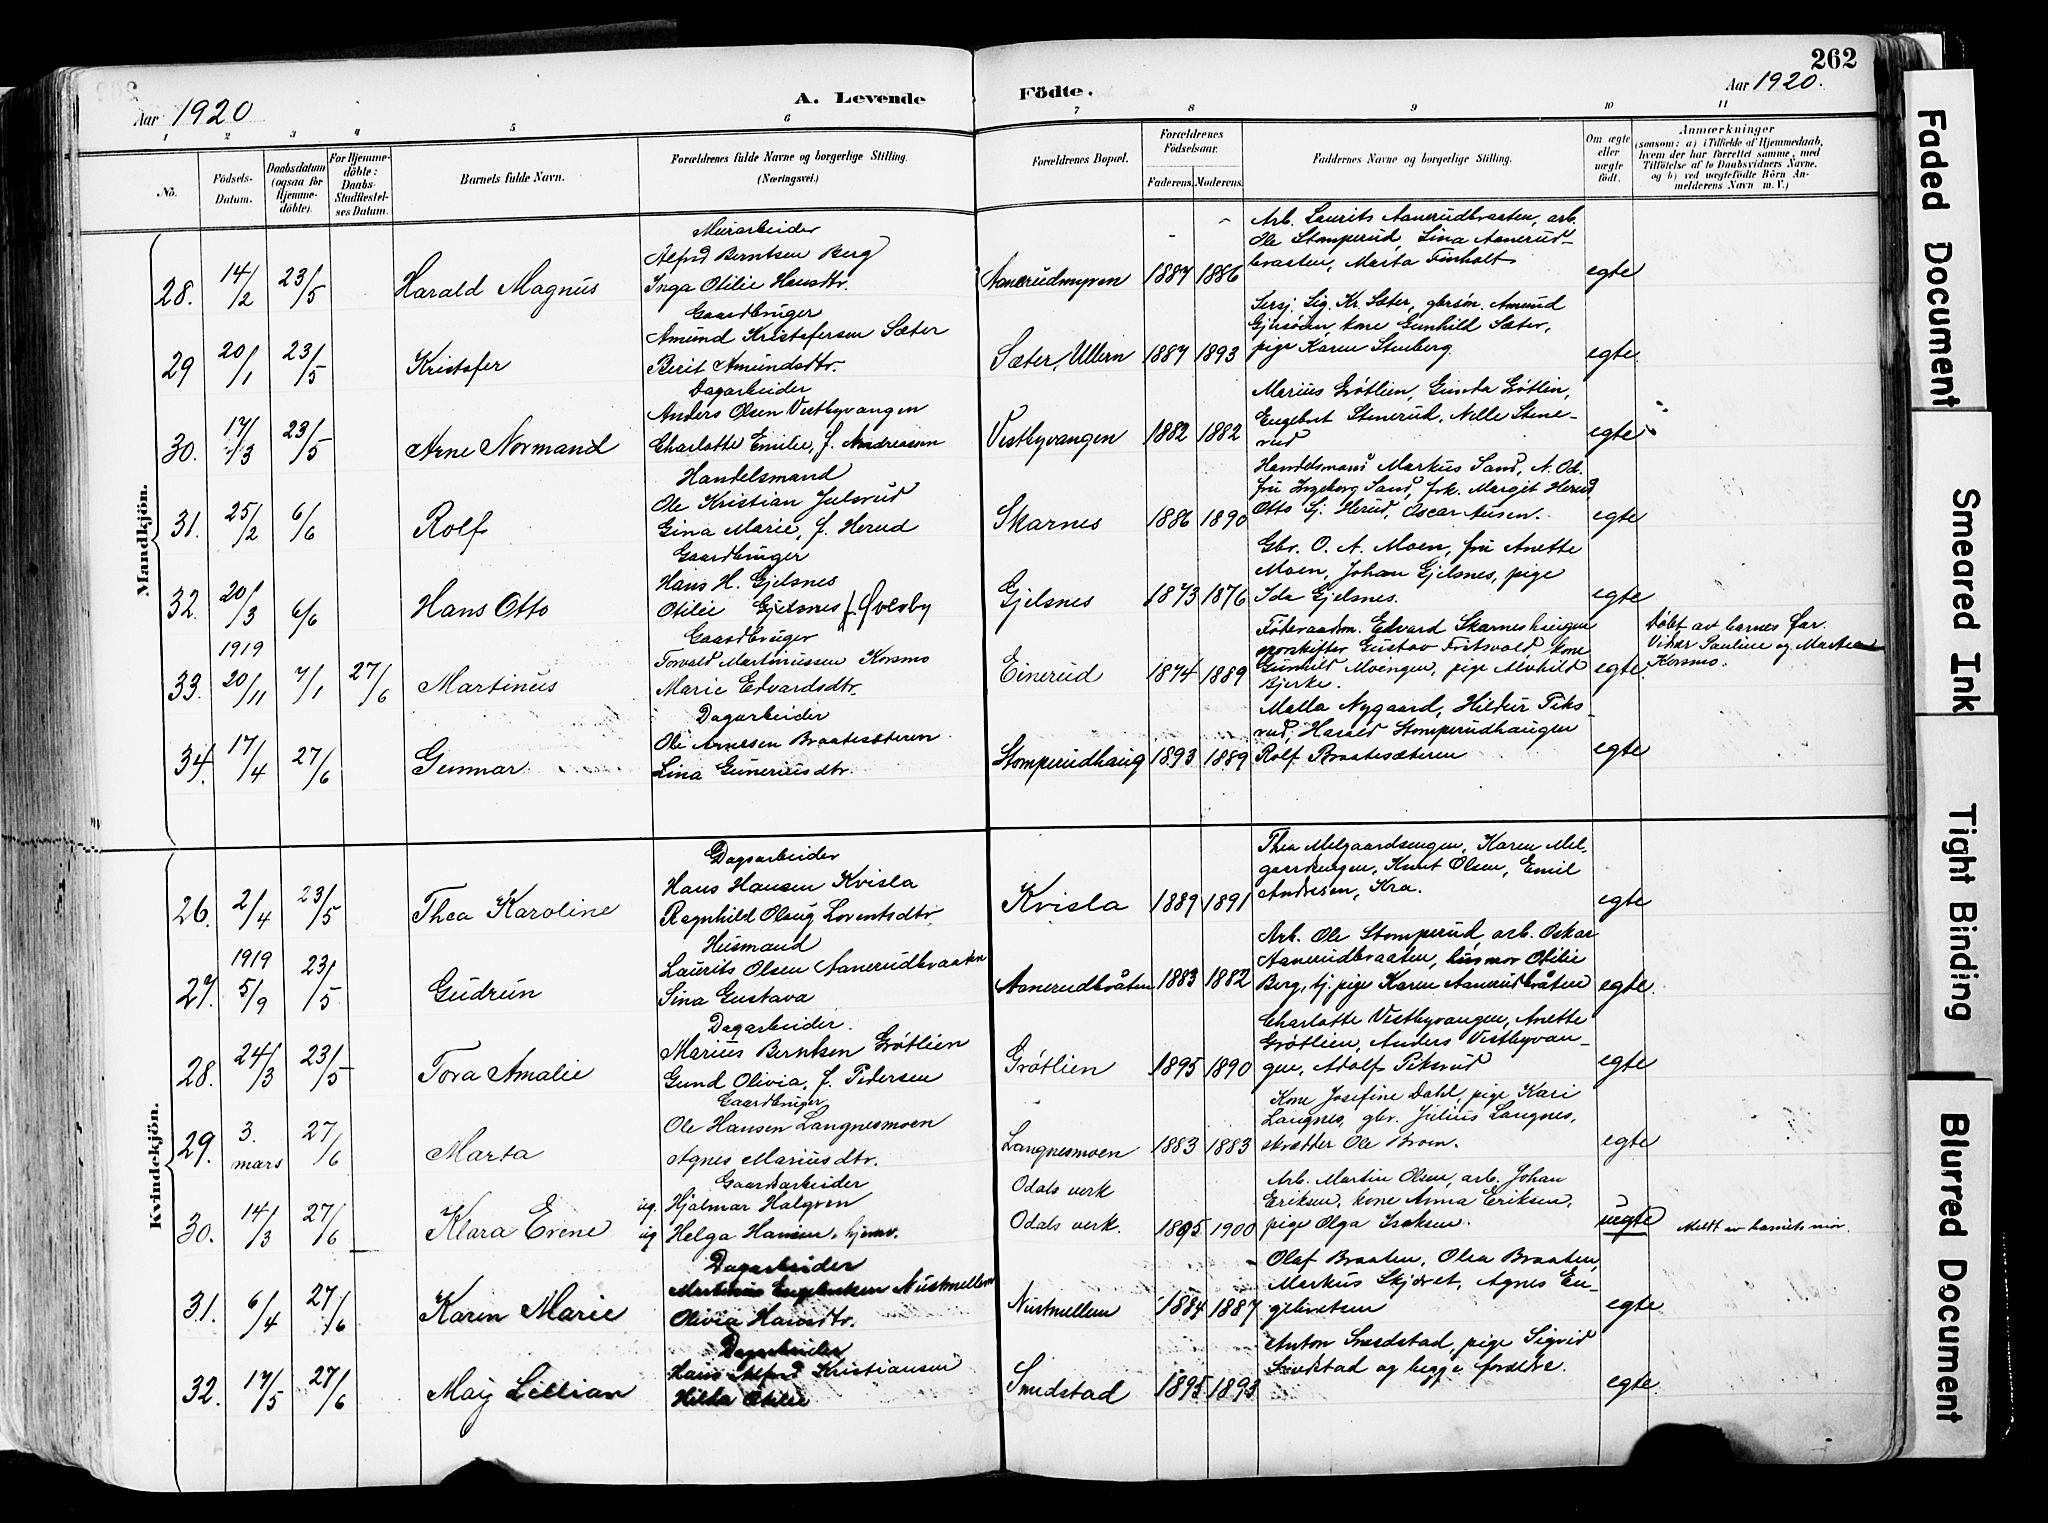 262
Aar 1920
A. Levende
Födte.
Aar 1920.
1 2 3 4 5 6 7 8 9 10 11
No.
Födsels-
Datum.
Daabsdatum
(ogsaa for
Hjemme-
döbte).
For Hjemme-
döbte:
Daabs-
Stadfæstel-
ses Datum.
Barnets fulde Navn.
Forældrenes fulde Navne og borgerlige Stilling.
(Næringsvei.)
Forældrenes Bopæl.
Forældrenes
Födselsaar.
Faderens. Moderens.
Faddernes Navne og borgerlige Stilling.
Om ægte
eller
uægte
födt.
Anmærkninger
(saasom: a) i Tilfælde af Hjemmedaab,
hvem der har forrettet samme, med
Tilföielse af to Daabsvidners Navne,
og b) ved uægtefödte Börn An-
melderens Navn m. V.)
Mandkjön.
28. 14/2 23/5 Harald Magnus
Murarbeider
Alfred Berntsen Berg
Inga Otilie Hansdtr.
Aanerudmyren 1887 1886
Arb. Laurits Aanerudbraaten, arb.
Ole Stomperud, Lina Aanerud-
braaten, Marta Finholt
egte
29 20/1 23/5 Kristofer
Gaardbruger
Amund Kristofersen Sæter
Berit Amundsdtr.
Sæter, Ullern 1887 1893
Sersj. Sig. Kr. Sæter, gbrsøn. Amund
kone Gunhild Sæter,
pige Karen Stenberg.
egte
30. 17/3 23/5 Arne Normand
Dagarbeider
Anders Olsen Vestbyvangen
Charlotte Emilie, f. Andreassen
Vestbyvangen 1882 1882
Marius Grøtlien, Gunda Grøtlin,
Engebret Stenerud, Nelle Stene-
rud
egte
31. 25/2 6/6 Rolf
Handelsmand
Ole Kristian Julsrud
Gina Marie, f. Herud
Skarnes 1886 1890
Handelsmand Markus Sand, N. Od.
fru Ingeborg Sand, frk. Margit Herud
Otto Sj. Herud, Oscar Ausen.
egte
32. 20/3 6/6 Hans Otto
Gaardbruger
Hans H. Gjelsnes
Otilie Gjelsnes f. Øvleby
Gjelsnes 1873 1876
Gbr. O. A. Moen, fru Anette
Moen, Johan Gjelsnes, pige
Ida Gjelsnes.
egte
33. 1919 20/11 7/1 27/6 Martinus
Gaardbruger
Torvald Martinussen Korsmo
Marie Edvardsdtr.
Einerud 1874 1889
Edvard Skarneshaugen
sporskifter Gustav Fritsvold, kone
Gunhild Moengen, pige Alvhild
Bjerke.
egte
Døbt av barnets far.
Vidner Pauline og Martin
Korsmo.
34. 17/4 27/6 Gunnar
Dagarbeider
Ole Arnesen Braatesæteren
Lina Guneriusdtr.
Stomperudhaug 1893 1889
Malla Nygaard, Hildur Fiks-
rud, Harald Stomperudhaugen
Rolf Braatesæteren
egte
Kvindekjön.
26. 2/4 23/5 Thea Karoline
Dagsarbeider
Hans Hansen Kvisla
Ragnhild Olaug Lorentsdtr
Kvisla 1889 1891
Thea Melgaardsengen, Karen Mel-
gaardsengen, Knut Olsen, Emil
Andresen, Kra.
egte
27. 1919 5/9 23/5 Gudrun
Husmand
Laurits Olsen Aanerudbraaten
Sina Gustava
Aanerudbråten 1883 1882
Arb. Ole Stomperud, arb. Oskar
Aanerudbraaten, husmor Otilie
Berg, tj. pige Karen Aanerudbråten
egte.
28. 24/3 23/5 Tora Amalie
Dagarbeider.
Marius Berntsen Grøtlien
Gund Olivia, f. Pedersen
Grøtlien 1895 1890
Charlotte Vestbyvangen, Anette
Grøtlien, Anders Vestbyvan-
gen, Adolf Piksrud
egte
29. 3. mars 27/6 Marta
Gaardbruger
Ole Hansen Langnesmoen
Agnes Mariusdtr.
Langnesmoen 1883 1883
Kone Josefine Dahl, pige Kari
Langnes, gbr. Julius Langnes,
skrædder Ole Brom.
egte
30. 14/3 27/6 Klara Evene
Gaardsarbeider
ug. Hjalmar Halgren
ug Helga Hansen, hjemv.
Odals verk
Odals verk. 1895 1900
Arb. Martin Olsen, arb. Johan
Eriksen, kone Anna Eriksen,
pige Olga Isaksen.
uegte
Meldt av barnets mor.
31. 6/4 27/6 Karen Marie
Dagarbeider
Martinus Engebretsen Nustmellem
Olivia Hansdtr.
Nustmellem 1884 1887
Olaf Braaten, Olea Braaten,
Markus Skjøret, Agnes En-
gebretsen
egte
32. 17/5 27/6 May Lillian
Dagarbeider
Hans Alfred Kristiansen
Hilda Otilie
Smedstad 1895 1893
Anton Smedstad, pige Sigrid
Smedstad og begge forældre.
egte.
Faded Document
Smeared Ink
Tight Binding
Blurred Document